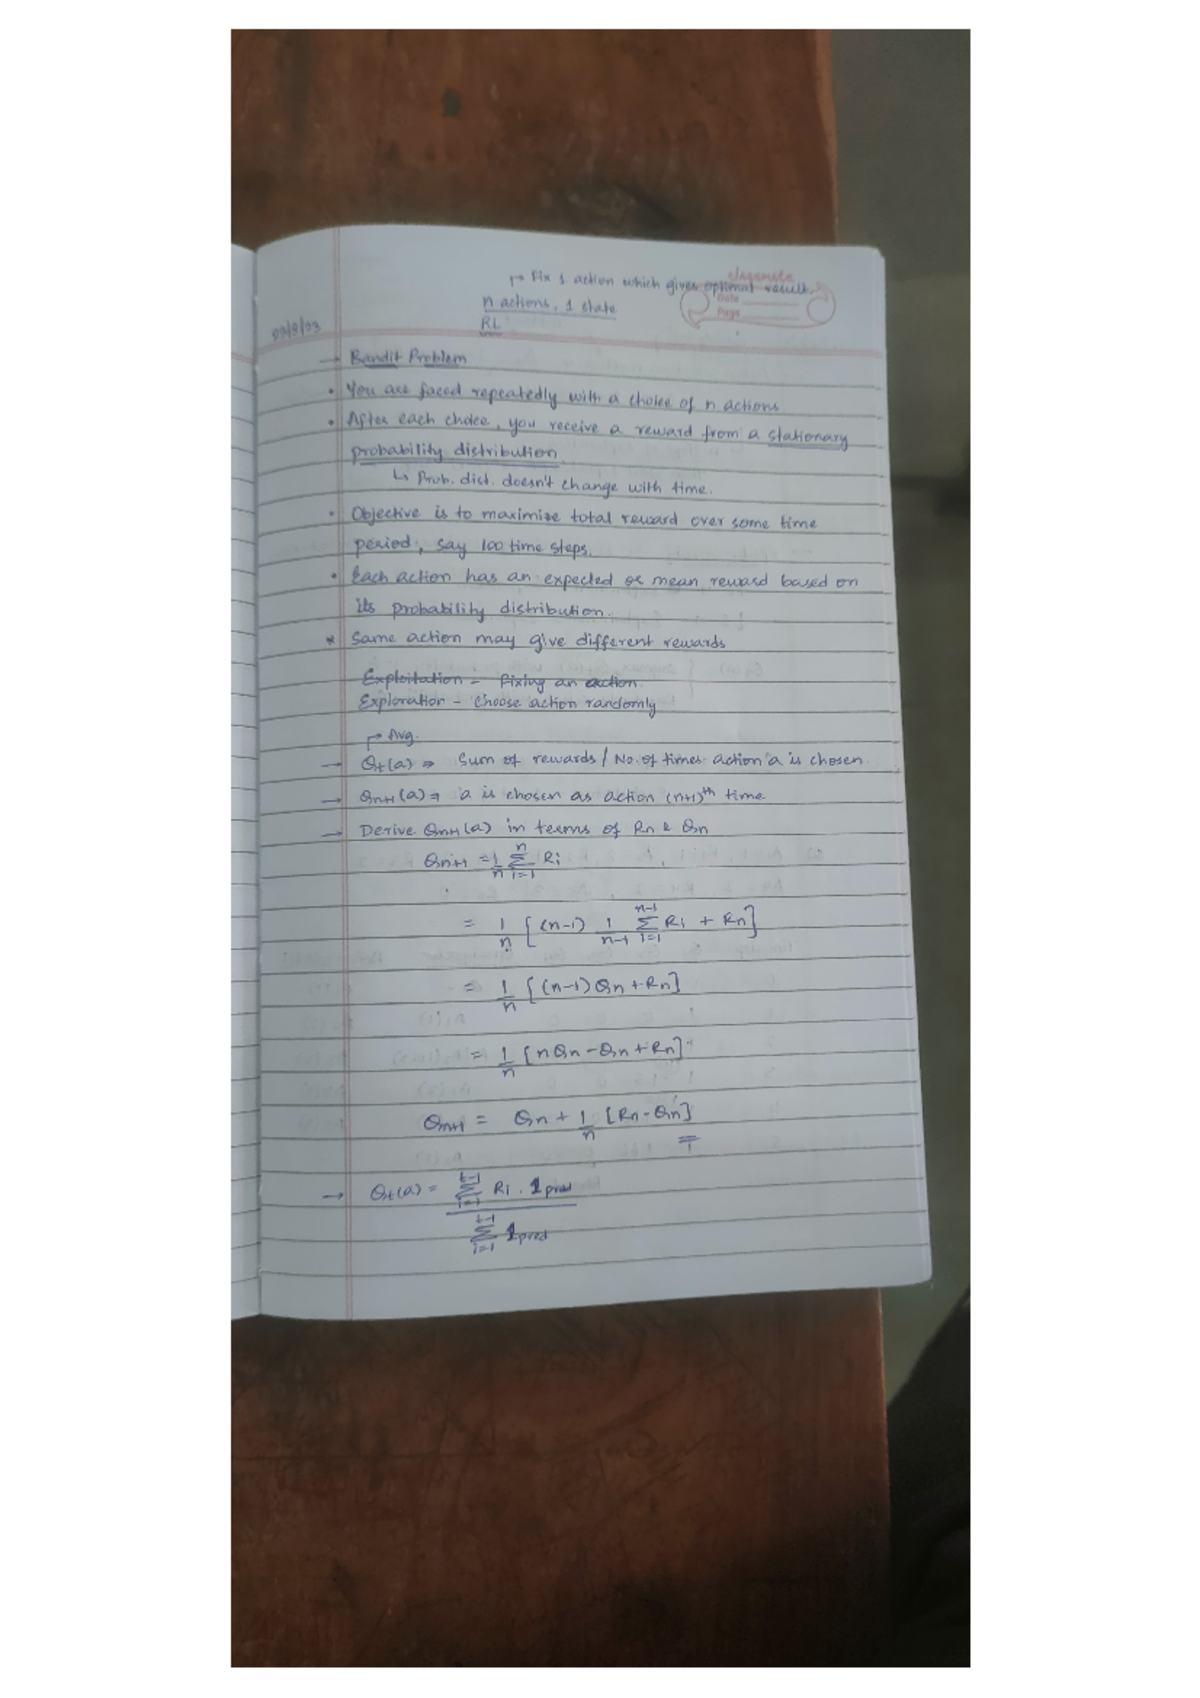 ↱ Fix 1 action which gives optimal result.
classmate
Date
Page
n actions, 1 state
RL
→ Bandit Problem
• You are faced repeatedly with a choice of n actions
• After each choice, you receive a reward from a stationary
probability distribution
↳ Prob. dist. doesn't change with time.
• Objective is to maximize total reward over some time
period, say 100 time steps.
• Each action has an expected or mean reward based on
its probability distribution.
* Same action may give different rewards
Exploitation - Fixing an action
Exploration - Choose action randomly
↱ Avg.
→ Qt(a) ⇒ Sum of rewards / No. of times action 'a' is chosen.
→ Qn+1(a) ⇒ a is chosen as action (n+1)th time
→ Derive Qn+1(a) in terms of Rn & Qn
Qn+1 = 1/n Σ_{i=1}^{n} Ri
= 1/n [(n-1) 1/(n-1) Σ_{i=1}^{n-1} Ri + Rn]
= 1/n [(n-1)Qn + Rn]
= 1/n [nQn - Qn + Rn]
Qn+1 = Qn + 1/n [Rn - Qn]
→ Qt(a) = Σ_{i=1}^{t-1} Ri . 1pred / Σ_{i=1}^{t-1} 1pred